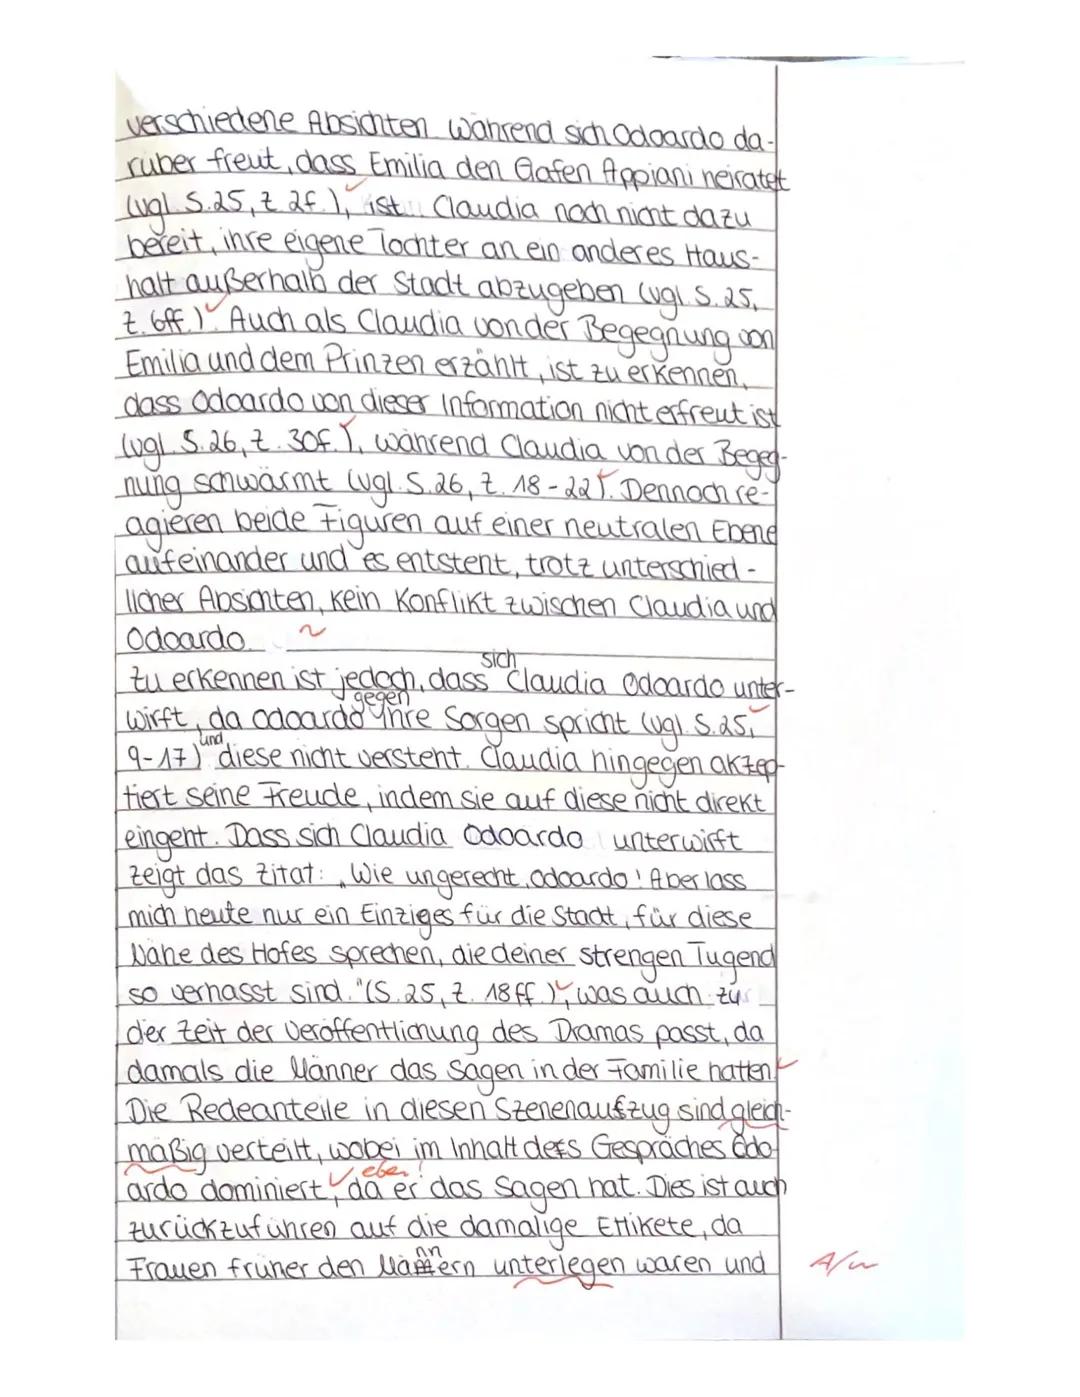 verschiedene Absichten während sich Odoardo da-
rüber freut, dass Emilia den Gafen Appiani heiratet
(vgl. S. 25, Z. 2f.), ist Claudia noch nicht dazu
bereit, ihre eigene Tochter an ein anderes Haus-
halt außerhalb der Stadt abzugeben (vgl. S. 25,
Z. 6ff.). Auch als Claudia von der Begegnung von
Emilia und dem Prinzen erzählt, ist zu erkennen,
dass Odoardo von dieser Information nicht erfreut ist
(vgl. S. 26, Z. 30f.), während Claudia von der Begeg-
nung schwärmt (vgl. S. 26, Z. 18-22). Dennoch re-
agieren beide Figuren auf einer neutralen Ebene
aufeinander und es entsteht, trotz unterschied-
licher Absichten, kein Konflikt zwischen Claudia und
Odoardo.
Zu erkennen ist jedoch, dass sich Claudia Odoardo unter-
wirft, da Odoardo gegen ihre Sorgen spricht (vgl. S. 25,
9-17) und diese nicht versteht. Claudia hingegen akzep-
tiert seine Freude, indem sie auf diese nicht direkt
eingeht. Dass sich Claudia Odoardo unterwirft
zeigt das Zitat: „Wie ungerecht, Odoardo! Aber lass
mich heute nur ein Einziges für die Stadt, für diese
Nähe des Hofes sprechen, die deiner strengen Tugend
so verhasst sind." (S. 25, Z. 18ff.), was auch zu
der Zeit der Veröffentlichung des Dramas passt, da
damals die Männer das Sagen in der Familie hatten.
Die Redeanteile in diesen Szenenaufzug sind gleich-
mäßig verteilt, wobei im Inhalt des Gespräches Odo-
ardo dominiert, da er eben! das Sagen hat. Dies ist auch
zurückzuführen auf die damalige Ettikete, da
Frauen früher den Männern unterlegen waren und
A/w